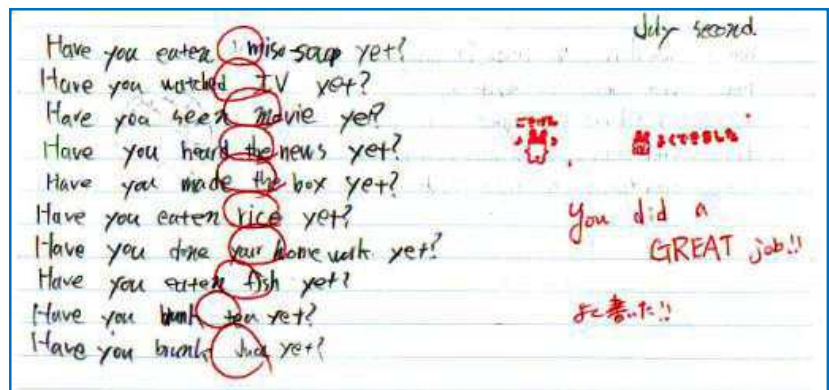 July second.
Have you eaten miso-soup yet?
Have you watched TV yet?
Have you seen movie yet?
Have you heard the news yet?
Have you made the box yet?
Have you eaten rice yet?
Have you done your home work yet?
Have you eaten fish yet?
Have you tea yet?
Have you yet?
ごきげん
よくできました
You did a
GREAT job!!
よく書いた!!